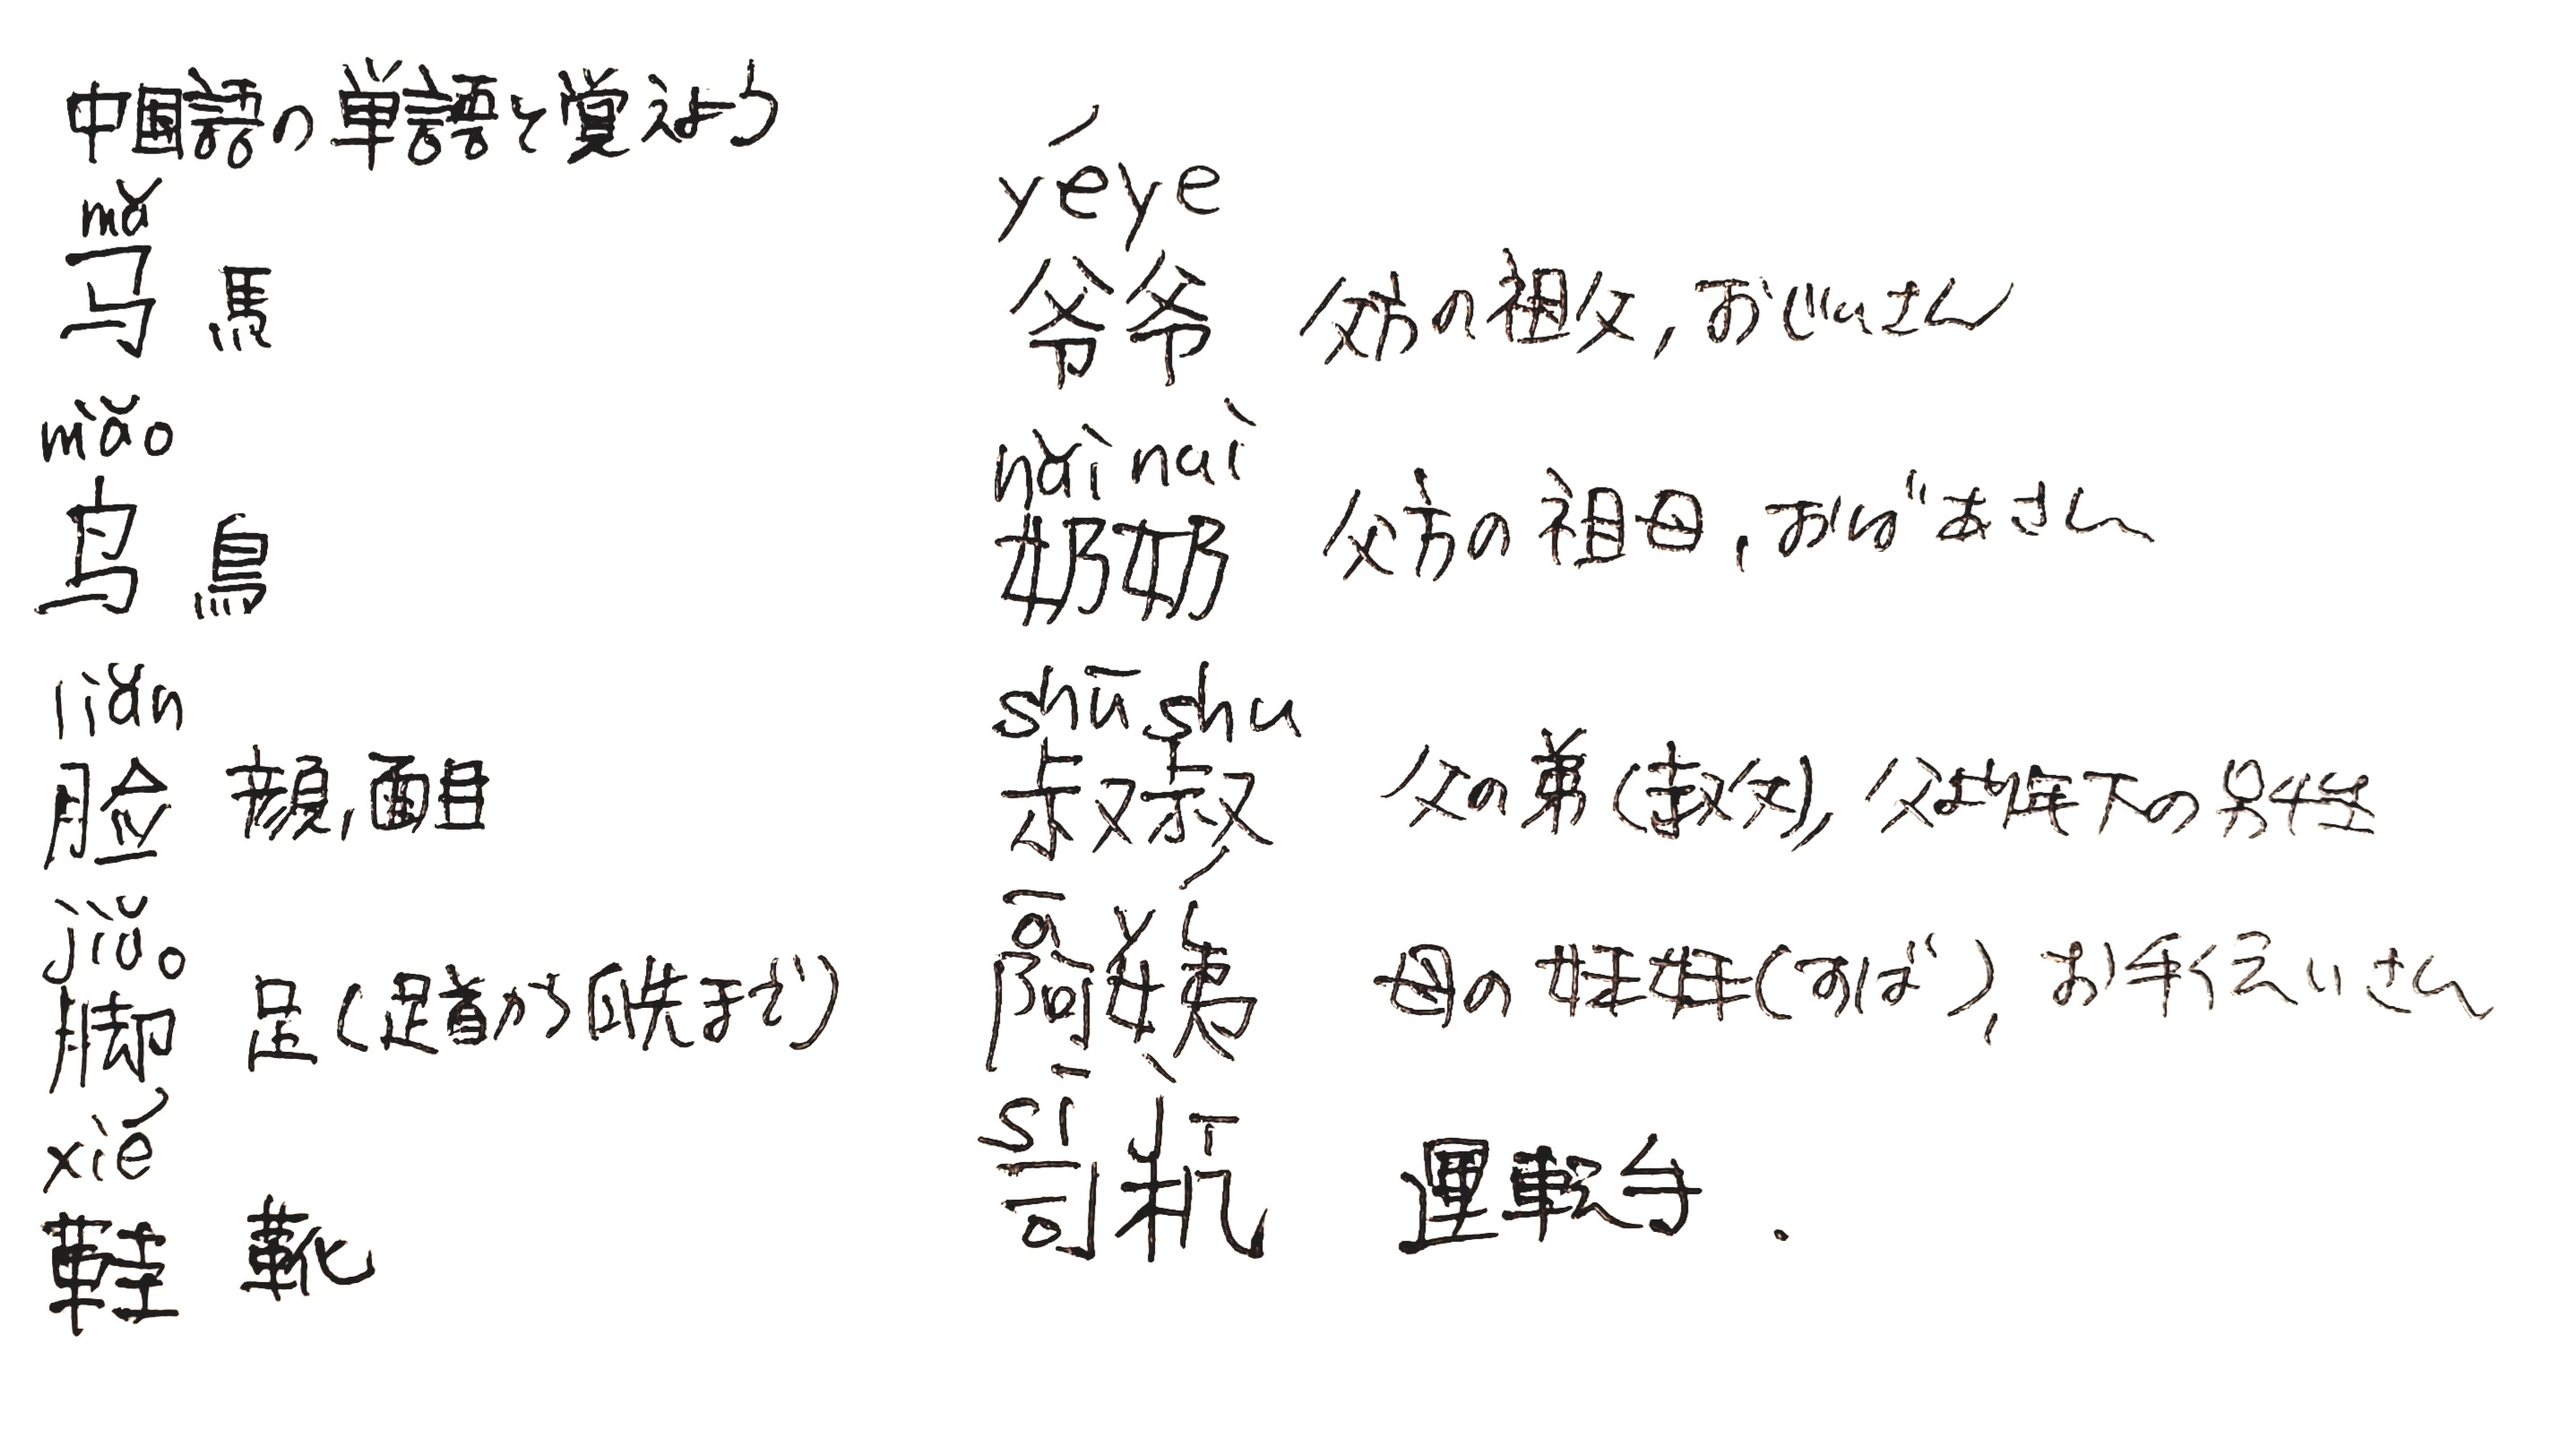 中国語の単語を覚えよう
mǎ
马 馬
miǎo
鸟 鳥
liǎn
脸 顔,面目
jiǎo
脚 足(足首から 先まで)
xié
鞋 靴
yéye
爷爷 父方の祖父,おじいさん
nǎinai
奶奶 父方の祖母,おばあさん
shūshu
叔叔 父の弟(叔父),父より年下の男性
āyí
阿姨 母の姉妹(おば),お手伝いさん
sījī
司机 運転手.